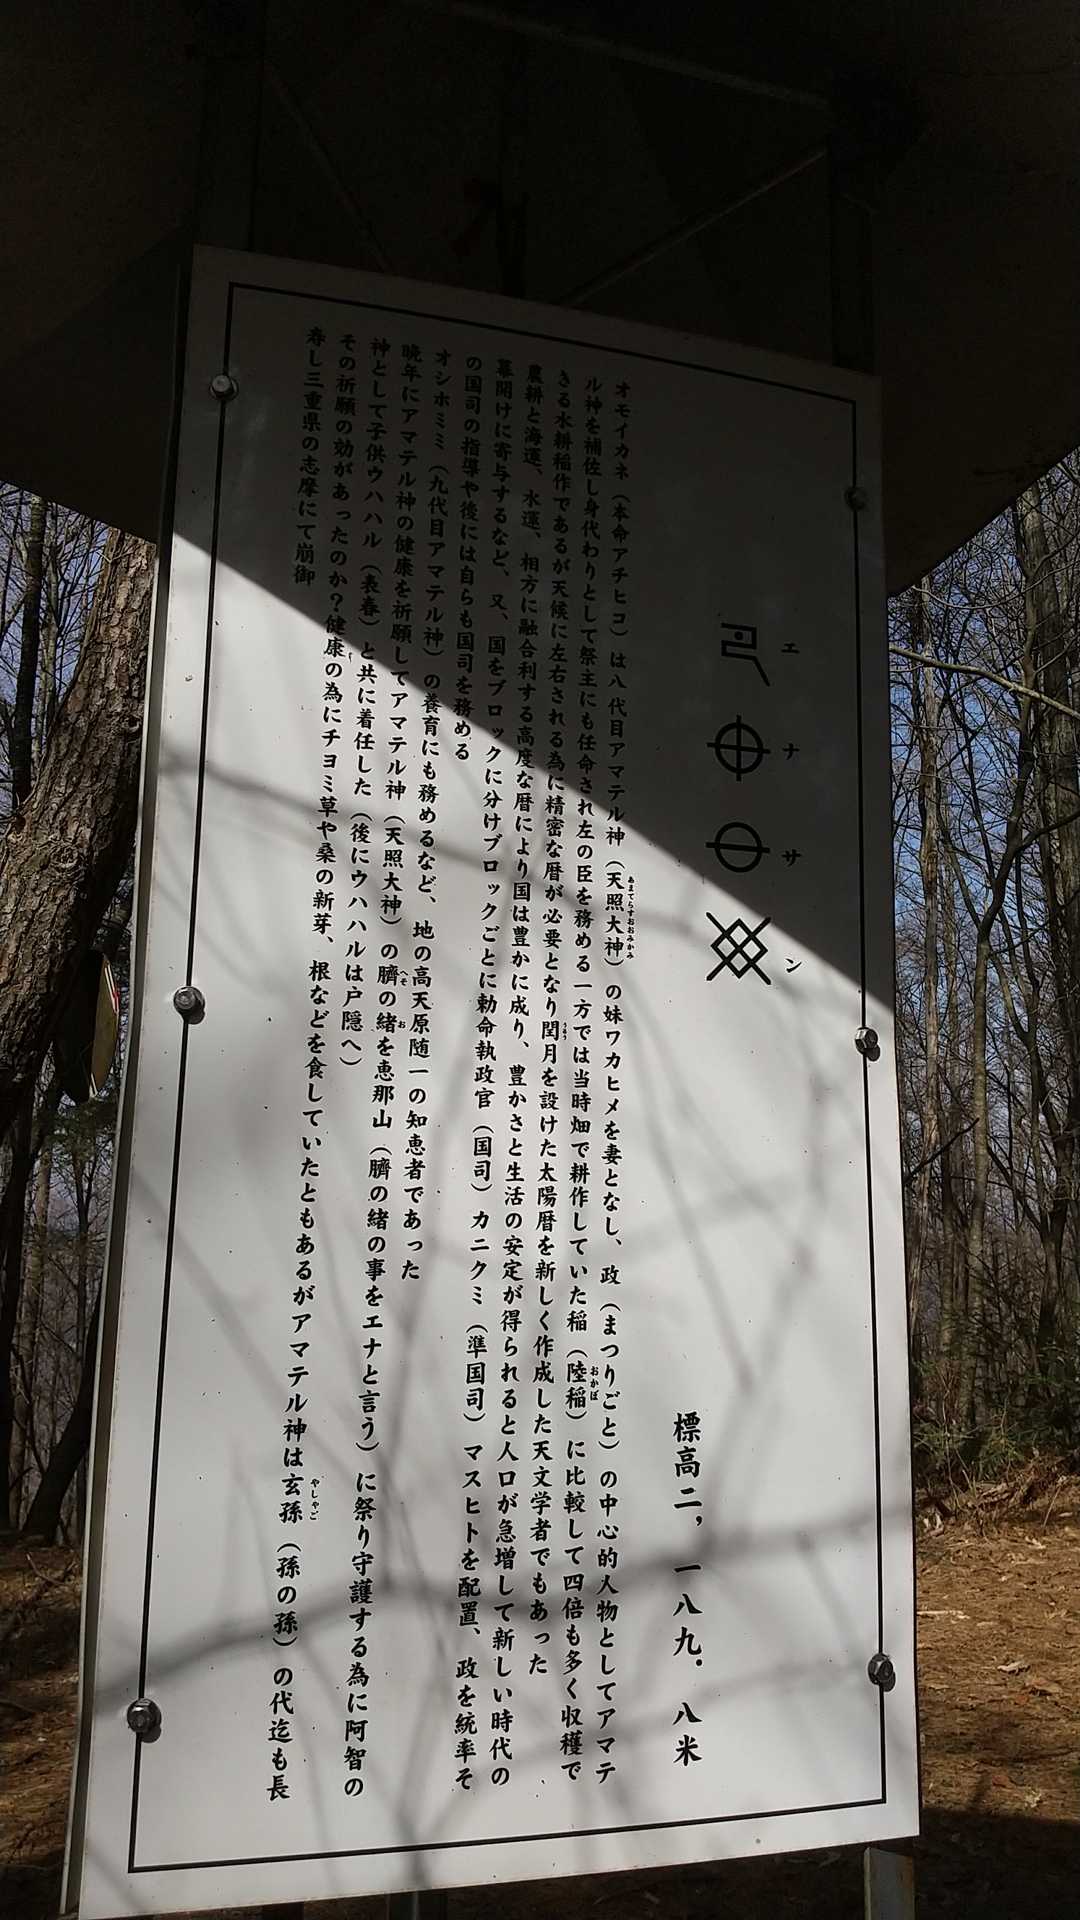 エナサン
標高二，一八九．八米
オモイカネ（本命アチヒコ）は八代目アマテル神（天照大神）の妹ワカヒメを妻となし、政（まつりごと）の中心的人物としてアマテ
あまてらすおおみかみ
ル神を補佐し身代わりとして祭主にも任命され左の臣を務める一方では当時畑で耕作していた稲（陸稲）に比較して四倍も多く収穫で
おかぼ
きる水耕稲作であるが天候に左右される為に精密な暦が必要となり閏月を設けた太陽暦を新しく作成した天文学者でもあった
うるう
農耕と海運、水運、相方に融合利する高度な暦により国は豊かに成り、豊かさと生活の安定が得られると人口が急増して新しい時代の
幕開けに寄与するなど、又、国をブロックに分けブロックごとに勅命執政官（国司）カニクミ（準国司）マスヒトを配置、政を統率そ
の国司の指導や後には自らも国司を務める
オシホミミ（九代目アマテル神）の養育にも務めるなど、地の高天原随一の知恵者であった
晩年にアマテル神の健康を祈願してアマテル神（天照大神）の臍の緒を恵那山（臍の緒の事をエナと言う）に祭り守護する為に阿智の
へそ
お
神として子供ウハハル（表春）と共に着任した（後にウハハルは戸隠へ）
その祈願の効があったのか？健康の為にチヨミ草や桑の新芽、根などを食していたともあるがアマテル神は玄孫（孫の孫）の代迄も長
やしゃご
寿し三重県の志摩にて崩御